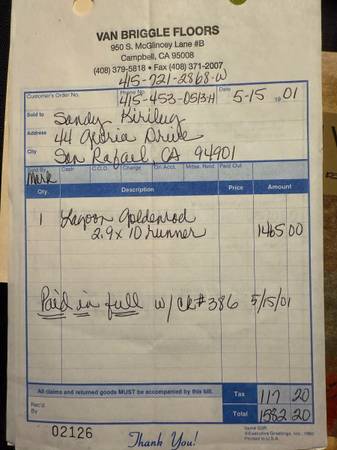 VAN BRIGGLE FLOORS
950 S. McGlincey Lane #B
Campbell, CA 95008
(408) 379-5818 • Fax (408) 371-2007
415-721-2868-W
Customer's Order No. Phone No. 415-453-0513-H Date 5-15 1901
Sold to Sandy
Address 44 Drive
City San Rafael, CA 94901
Sold By Cash C.O.D. Charge On Acct. Mdse. Retd. Paid Out
Mark
Qty. Description Price Amount
1 Lagoon Goldenrod
2.9 x 10 runner 1465.00
Paid in full w/ ck# 386 5/15/01
All claims and returned goods MUST be accompanied by this bill. Tax 117 20
Rec'd By Total 1582 20
02126 Thank You!
Printed in U.S.A.